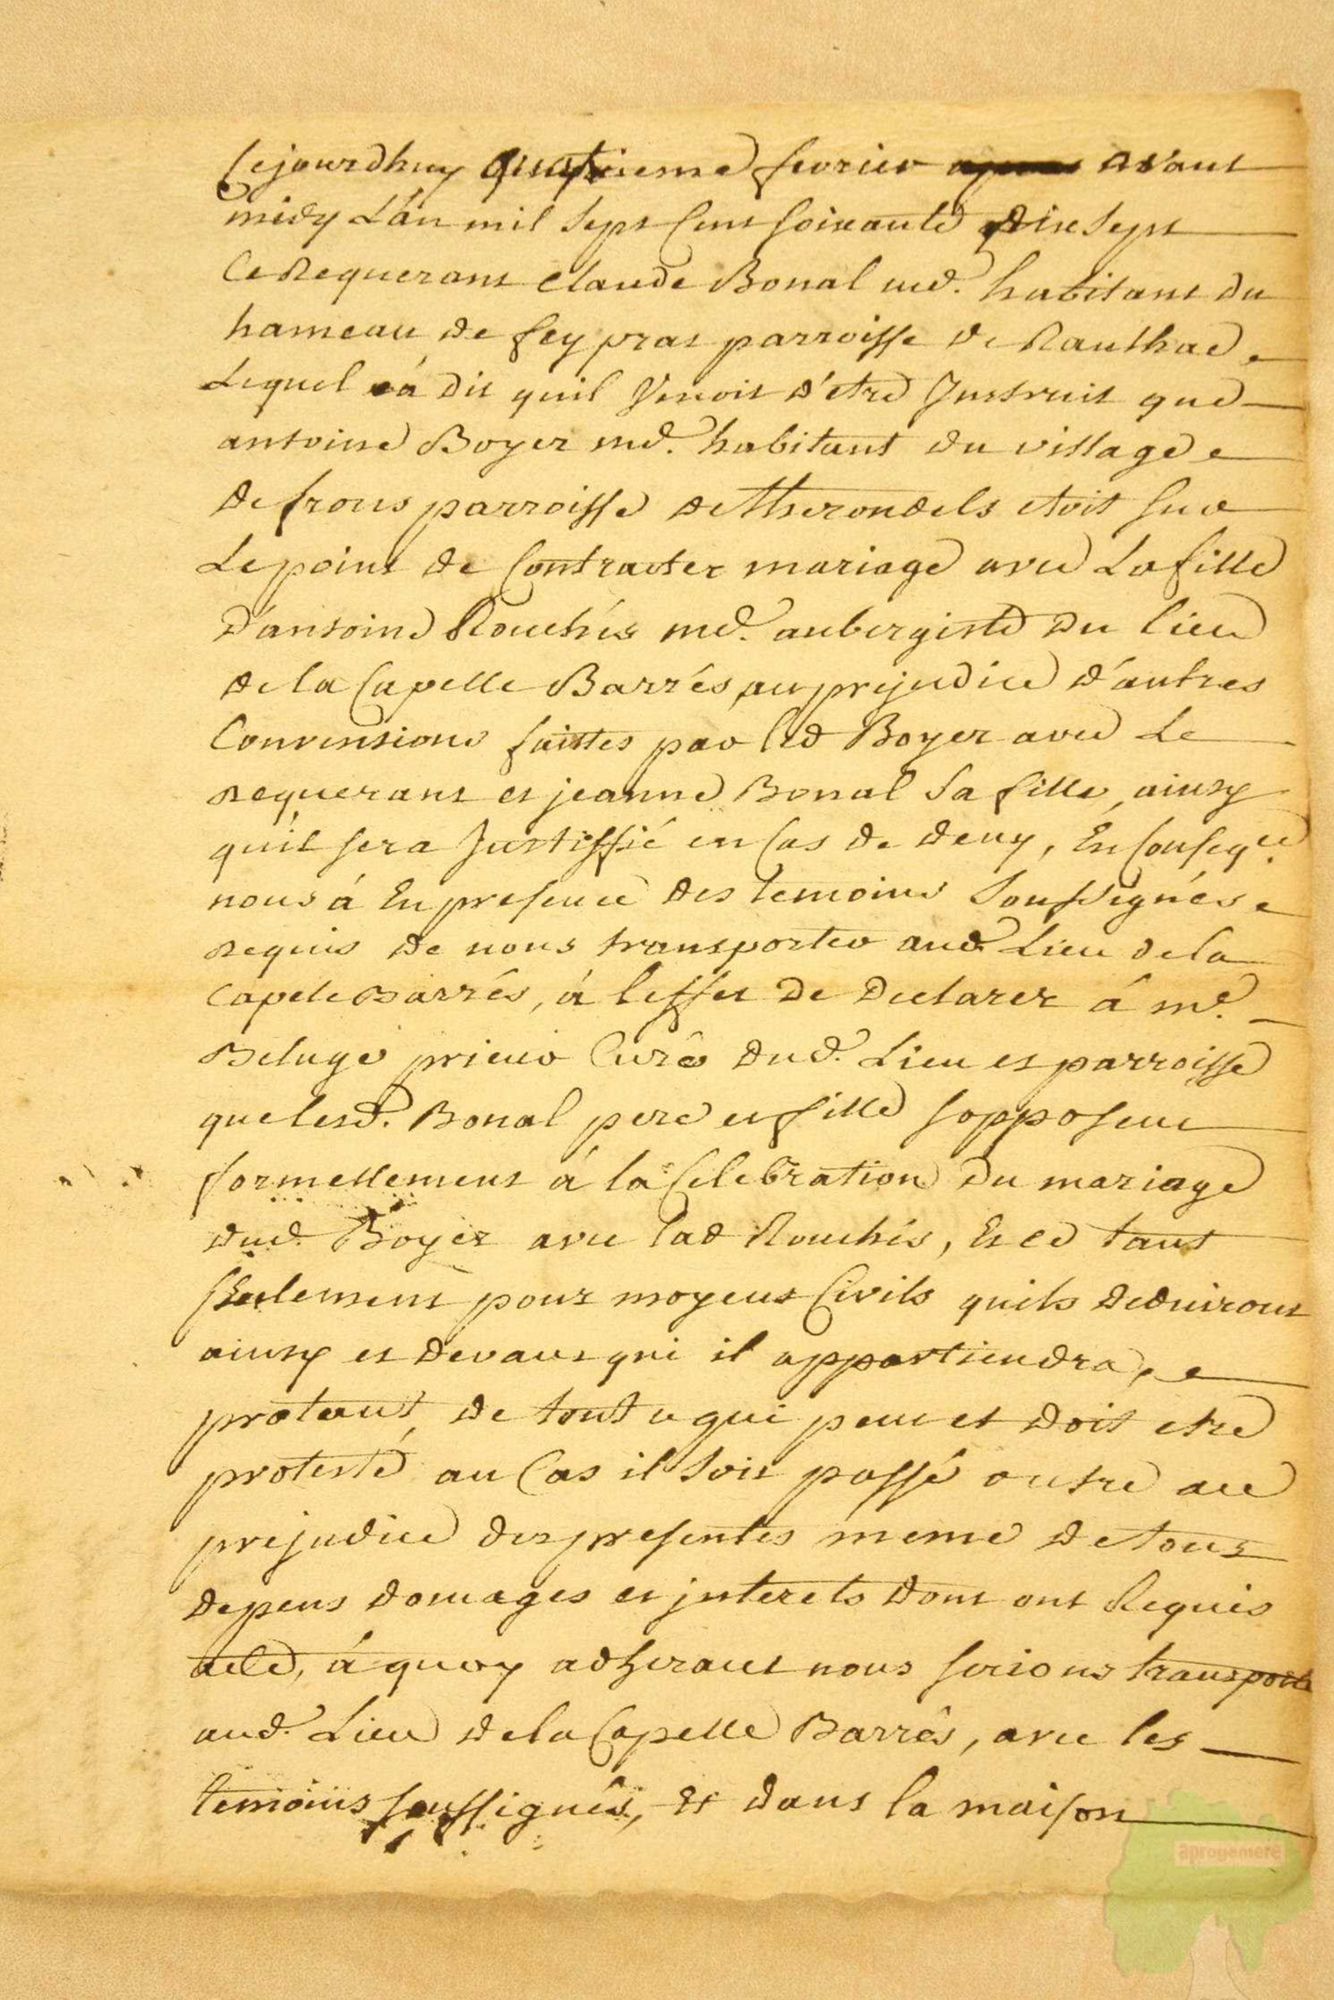 Cejourdhuy quatrieme fevrier avant
midy L'an mil sept Cent soixante dix sept
Ce Requerant Claude Bonal md. habitant du
hameau de fey pras parroisse de Raulhac
Lequel a dit quil Venoit d'etre Instruit que
antoine Boyer md. habitant du village
de frons parroisse de Therondels etoit sur
Le point de Contracter mariage avec La fille
D'antoine Rouchés md. aubergiste du lieu
de la Capelle Barrés, au prejudice d'autres
Conventions faittes par led Boyer avec Le
requerant et jeanne Bonal Sa fille, ainsy
qu'il sera Justiffié en Cas de deny, En Conseqce.
nous á En presence des temoins Soussignés
requis de nous transporter aud. Lieu de la
Capele Barrés, á leffet de declarer á me.
Deluge prieur Curé dud. Lieu et parroisse
que lesd. Bonal pere et fille sopposent
formellement á la Celebration du mariage
dud. Boyer avec lad Rouchés, Et ce tant
seulement pour moyens Civils quils deduiront
ainsy et devant qui il appartiendra,
protant, de tout ce qui peut et doit etre
protesté au Cas il Soit passé outre au
prejudice des presentes meme de tous
depens domages et jnterets dont ont Requis
acte, á quoy adherant nous serions transporté
aud. Lieu de la Capelle Barrés, avec les
temoins soussignés, et dans la maison
aprogemere